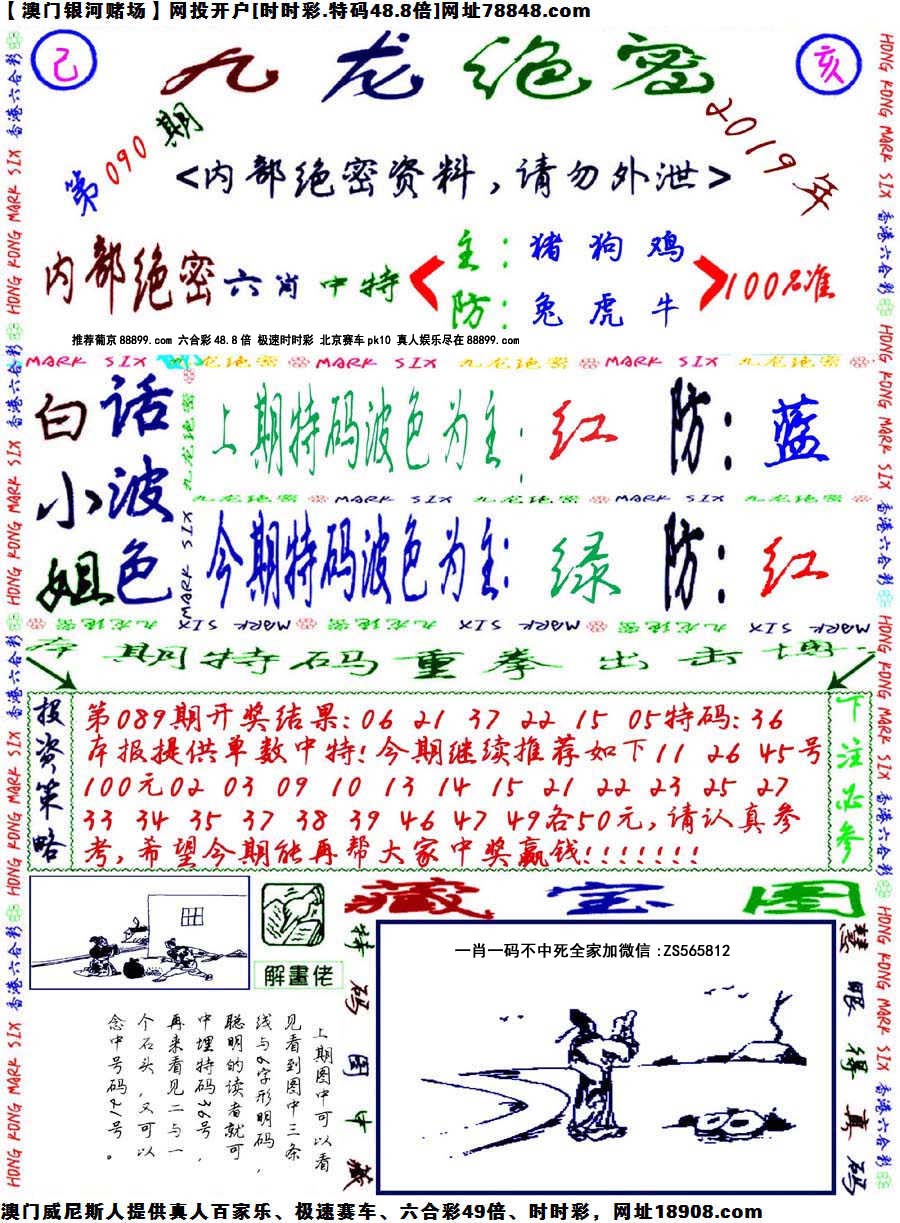 【澳门银河赌场】网投开户[时时彩.特码48.8倍]网址78848.com
己
九龙绝密
亥
第090期
2019年
<内部绝密资料,请勿外泄>
内部绝密六肖中特
主:猪狗鸡
防:兔虎牛
100%准
推荐葡京88899.com 六合彩48.8倍 极速时时彩 北京赛车pk10 真人娱乐尽在88899.com
MARK SIX 九龙绝密 MARK SIX 九龙绝密
白小姐
话波色
上期特码波色为主:红 防:蓝
九龙绝密 MARK SIX 九龙绝密 MARK SIX 九龙绝密
今期特码波色为主:绿 防:红
九龙绝密 MARK SIX
本期特码重拳出击
投资策略
第089期开奖结果:06 21 37 22 15 05特码:36
本报提供单数中特!今期继续推荐如下11 26 45号
100元02 03 09 10 13 14 15 21 22 23 25 27
33 34 35 37 38 39 46 47 49各50元,请认真参
考,希望今期能再帮大家中奖赢钱!!!!!!!
下注必参
藏宝图
解畫佬
上期图中可以看
见看到图中三条
线与6字形明码,
聪明的读者就可
中埋特码36号,
再来看见二与一
个石头,又可以
念中号码21号。
特码图中藏
一肖一码不中死全家加微信:ZS565812
慧眼得真码
HONG KONG MARK SIX 香港六合彩
澳门威尼斯人提供真人百家乐、极速赛车、六合彩49倍、时时彩，网址18908.com